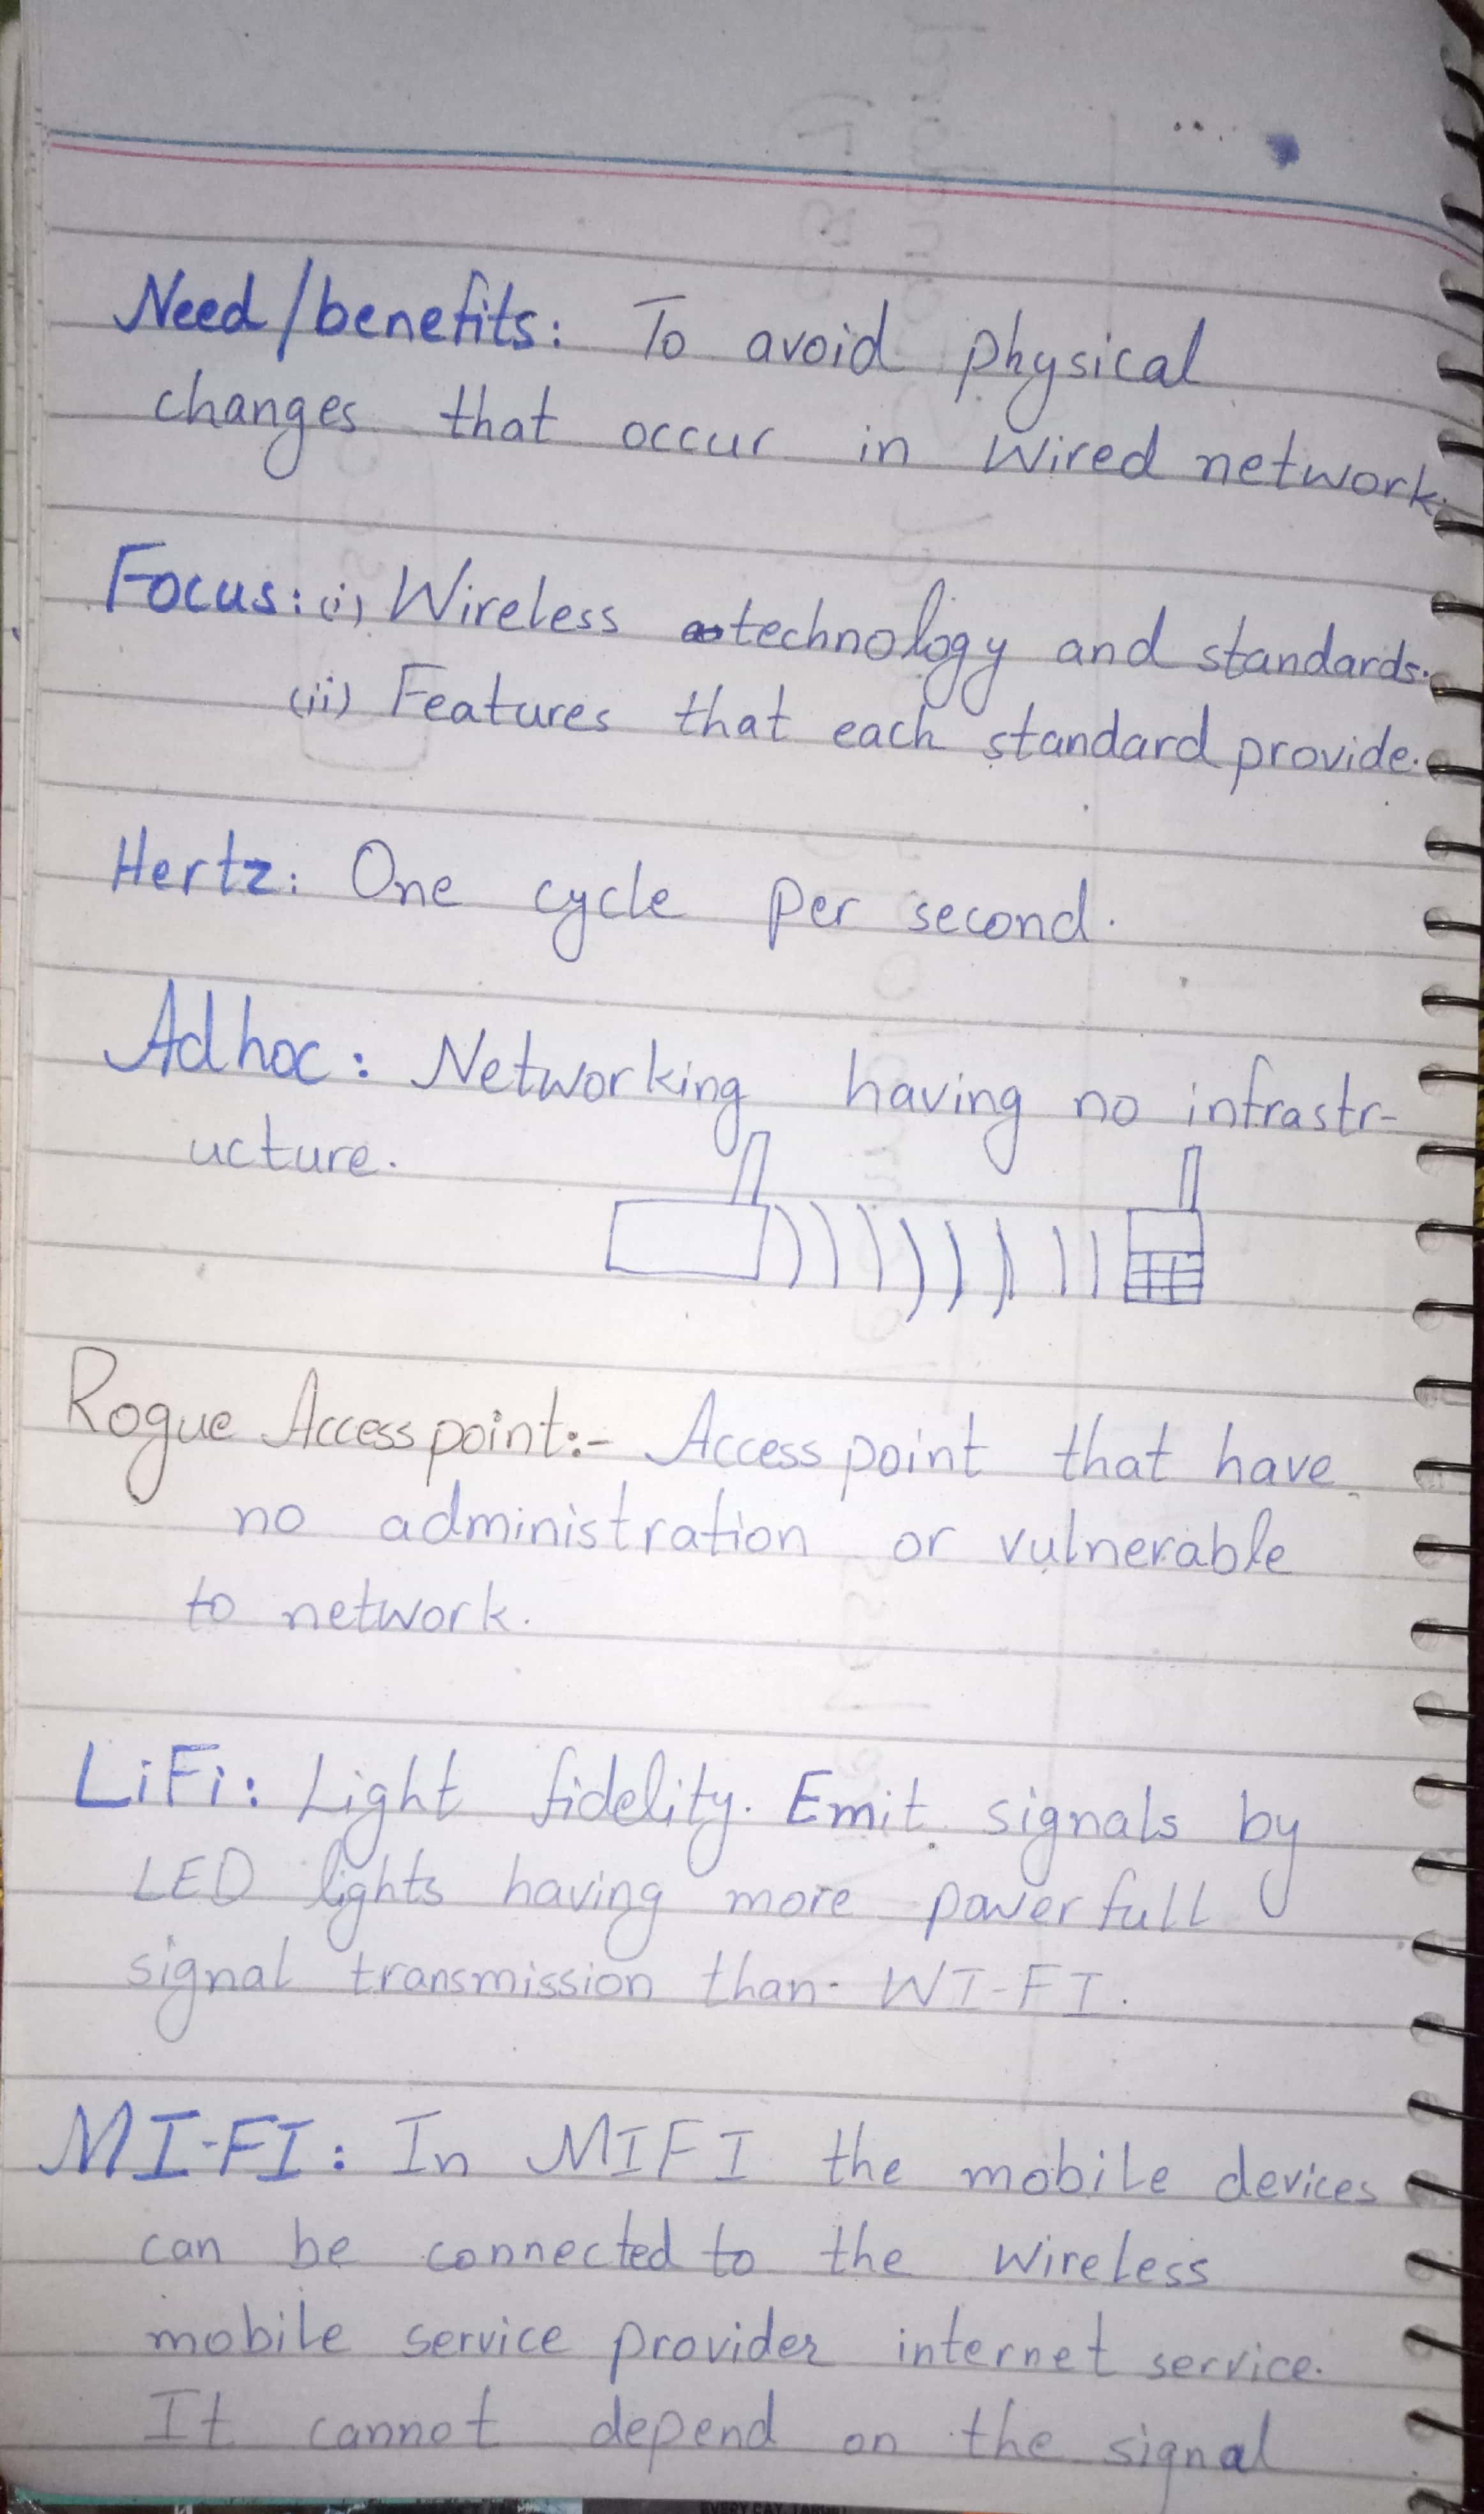 Need/benefits: To avoid physical
changes that occur in Wired network.
Focus: (i) Wireless technology and standards.
(ii) Features that each standard provide.
Hertz: One cycle per second.
Adhoc: Networking having no infrastr-
ucture.
Rogue Access point:- Access point that have
no administration or vulnerable
to network.
LiFi: Light fidelity. Emit signals by
LED lights having more powerfull
signal transmission than WI-FI.
MI-FI: In MIFI the mobile devices
can be connected to the wireless
mobile service provider internet service.
It cannot depend on the signal